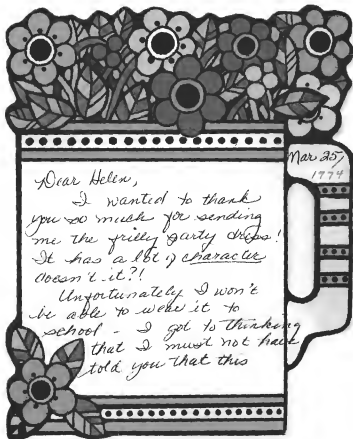 Mar 25,
1974
Dear Helen,
I wanted to thank
you so much for sending
me the frilly party dress!
It has a lot of character
doesn't it?!
Unfortunately I won't
be able to wear it to
school - I got to thinking
that I must not have
told you that this